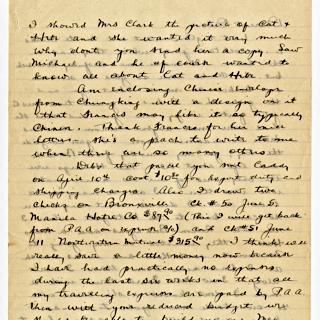 I showed Mrs Clark the picture of Cat &
Hrbr and she wanted it very much
Why dont you send her a copy. Saw
Michael and he of course wanted to
know all about Cat and Hrbr
Am inclosing Chinese envelope
from Chungking with a design on it
that Francis may like it so typically
Chinese. Thank Francis for her nice
letters. She's a peach to write to me
when there are so many others.
Debit that parcel you sent Caddy
on April 10th cost $10 for export duty and
shipping charges. Also I drew two
checks on Bronxville Ck. #50 June 5
Manila Hotel Co $87 (This I will get back
from P.A.A. on expense a/c) and ck #51 June
11 Northwestern Mutual $315. I think will
really save a little money now because
I have had practically no expenses
during the last six weeks in that all
my traveling expenses are paid by P.A.A.
Then with your reduced budget we